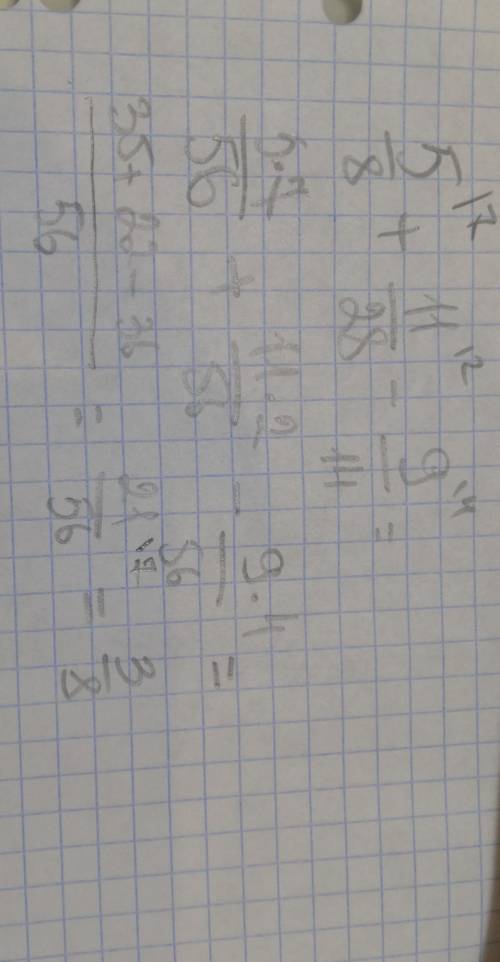 5\7/8 + 11\2/28 - 9\4/14 =
5·7/56 + 11·2/56 - 9·4/56 =
35+22-36/56 = 21\7/56 = 3/8